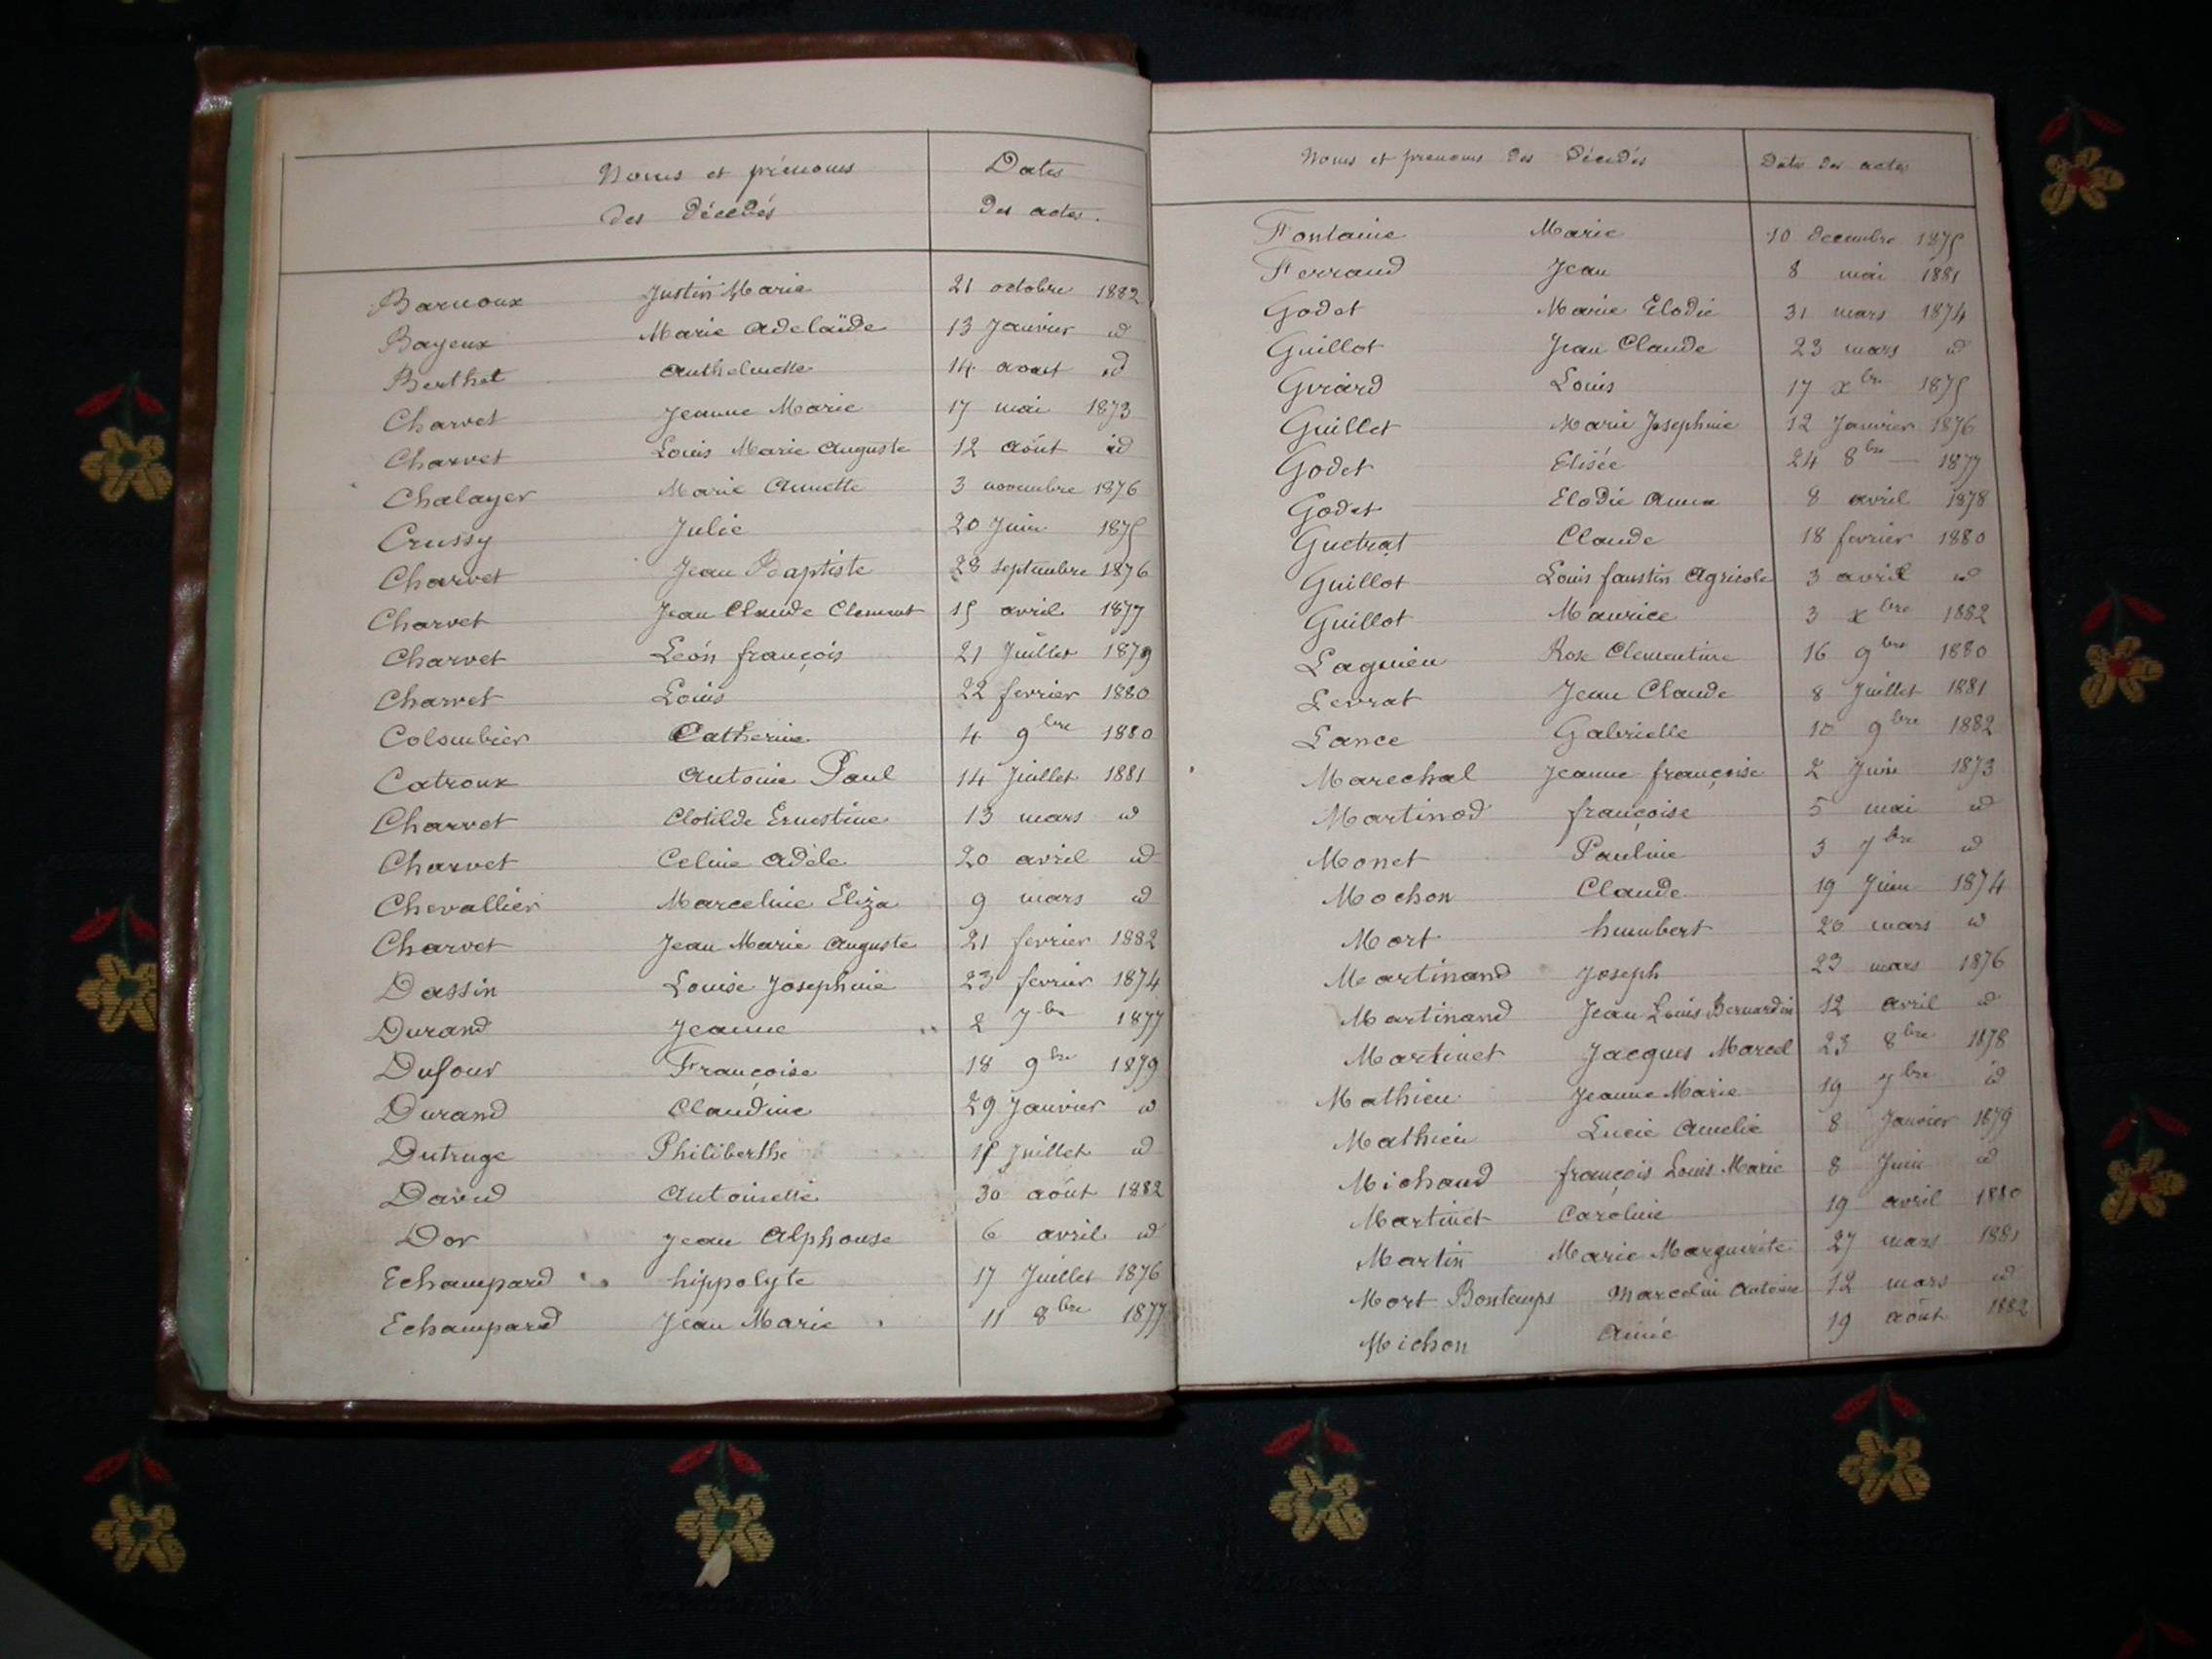 Noms et prénoms
des décédés
Dates
des actes.
Barnoux Justin Marie 21 octobre 1882
Bayeux Marie Adelaïde 13 Janvier id
Berthet Anthelmette 14 aout id
Charvet Jeanne Marie 17 mai 1873
Charvet Louis Marie Auguste 12 août id
Chalayer Marie Annette 3 novembre 1876
Crussy Julie 20 Juin 1875
Charvet Jean Baptiste 28 septembre 1876
Charvet Jean Claude Clement 15 avril 1877
Charvet Léon françois 21 Juillet 1879
Charvet Louis 22 fevrier 1880
Colombier Catherine 4 9bre 1880
Catroux Antoine Paul 14 Juillet 1881
Charvet Clotilde Ernestine 13 mars id
Charvet Celine Adèle 20 avril id
Chevallier Marceline Eliza 9 mars id
Charvet Jean Marie Auguste 21 fevrier 1882
Dassin Louise Josephine 23 fevrier 1874
Durand Jeanne 2 7bre 1877
Dufour Françoise 18 9bre 1879
Durand Claudine 29 Janvier id
Dutruge Philiberthe 15 Juillet id
David Antoinette 30 août 1882
Dor Jean Alphonse 6 avril id
Echampard hippolyte 17 Juillet 1876
Echampard Jean Marie 11 8bre 1877
Noms et prenoms des décédés Dates des actes
Fontaine Marie 10 decembre 1875
Ferrand Jean 8 mai 1881
Godet Marie Elodie 31 mars 1874
Guillot Jean Claude 23 mars id
Girard Louis 17 xbre 1875
Guillet Marie Josephine 12 Janvier 1876
Godet Elisée 24 8bre — 1877
Godet Elodie Anna 8 avril 1878
Guetrat Claude 18 fevrier 1880
Guillot Louis faustin Agricole 3 avril id
Guillot Maurice 3 xbre 1882
Lagnieu Rose Clementine 16 9bre 1880
Levrat Jean Claude 8 Juillet 1881
Lance Gabrielle 10 9bre 1882
Marechal Jeanne françoise 2 Juin 1873
Martinod françoise 5 mai id
Monet Pauline 3 7bre id
Mochon Claude 19 Juin 1874
Mort humbert 26 mars id
Martinand Joseph 23 mars 1876
Martinand Jean Louis Bernardin 12 avril id
Martinet Jacques Marcel 23 8bre 1878
Mathieu Jeanne Marie 19 7bre id
Mathieu Lucie Amelie 8 Janvier 1879
Michaud françois Louis Marie 8 Juin id
Martinet Caroline 19 avril 1880
Martin Marie Marguerite 27 mars 1881
Mort Bontemps Marcelin Antoine 12 mars id
Michon Aimé 19 août 1882